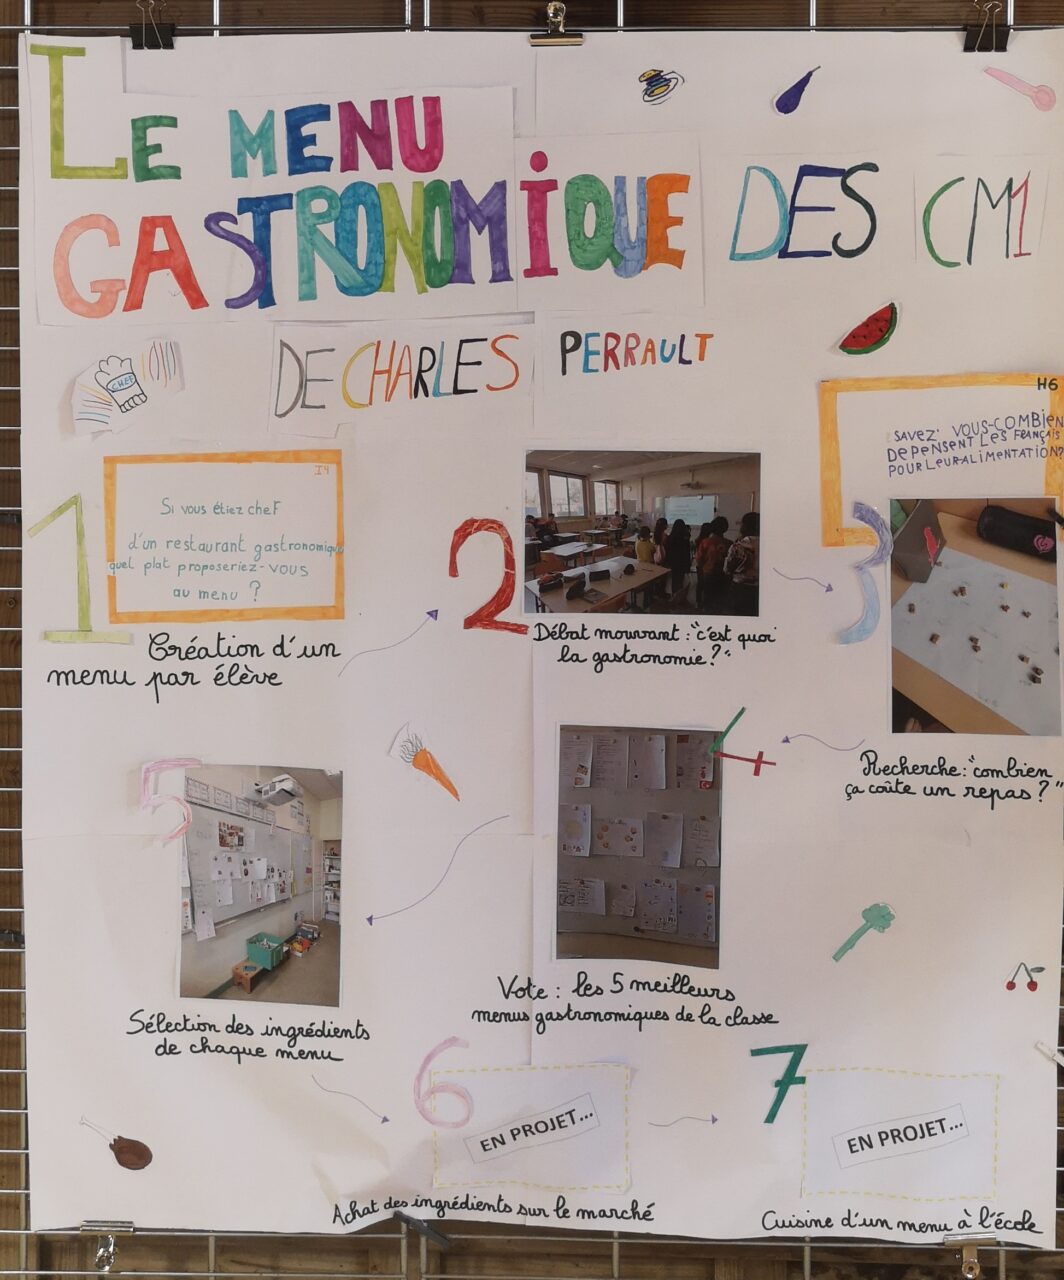 LE MENU
GASTRONOMIQUE DES CM1
DE CHARLES PERRAULT
CHEF
1
I4
Si vous étiez chef
d'un restaurant gastronomique
quel plat proposeriez-vous
au menu ?
Création d'un
menu par élève
2
Débat mouvant : "c'est quoi
la gastronomie ?"
3
H6
SAVEZ-VOUS COMBIEN
DÉPENSENT LES FRANÇAIS
POUR LEUR ALIMENTATION?
Recherche : "combien
ça coûte un repas ?"
4
Vote : les 5 meilleurs
menus gastronomiques de la classe
5
Sélection des ingrédients
de chaque menu
6
EN PROJET...
Achat des ingrédients sur le marché
7
EN PROJET...
Cuisine d'un menu à l'école